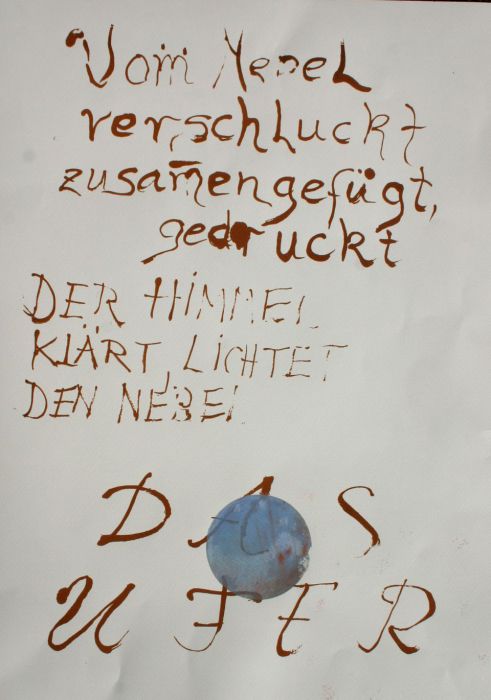 Vom Nebel
verschluckt
zusam̅engefügt,
gedruckt
DER HIMMEL
KLÄRT, LICHTET
DEN NEBEL
DAS
UFER